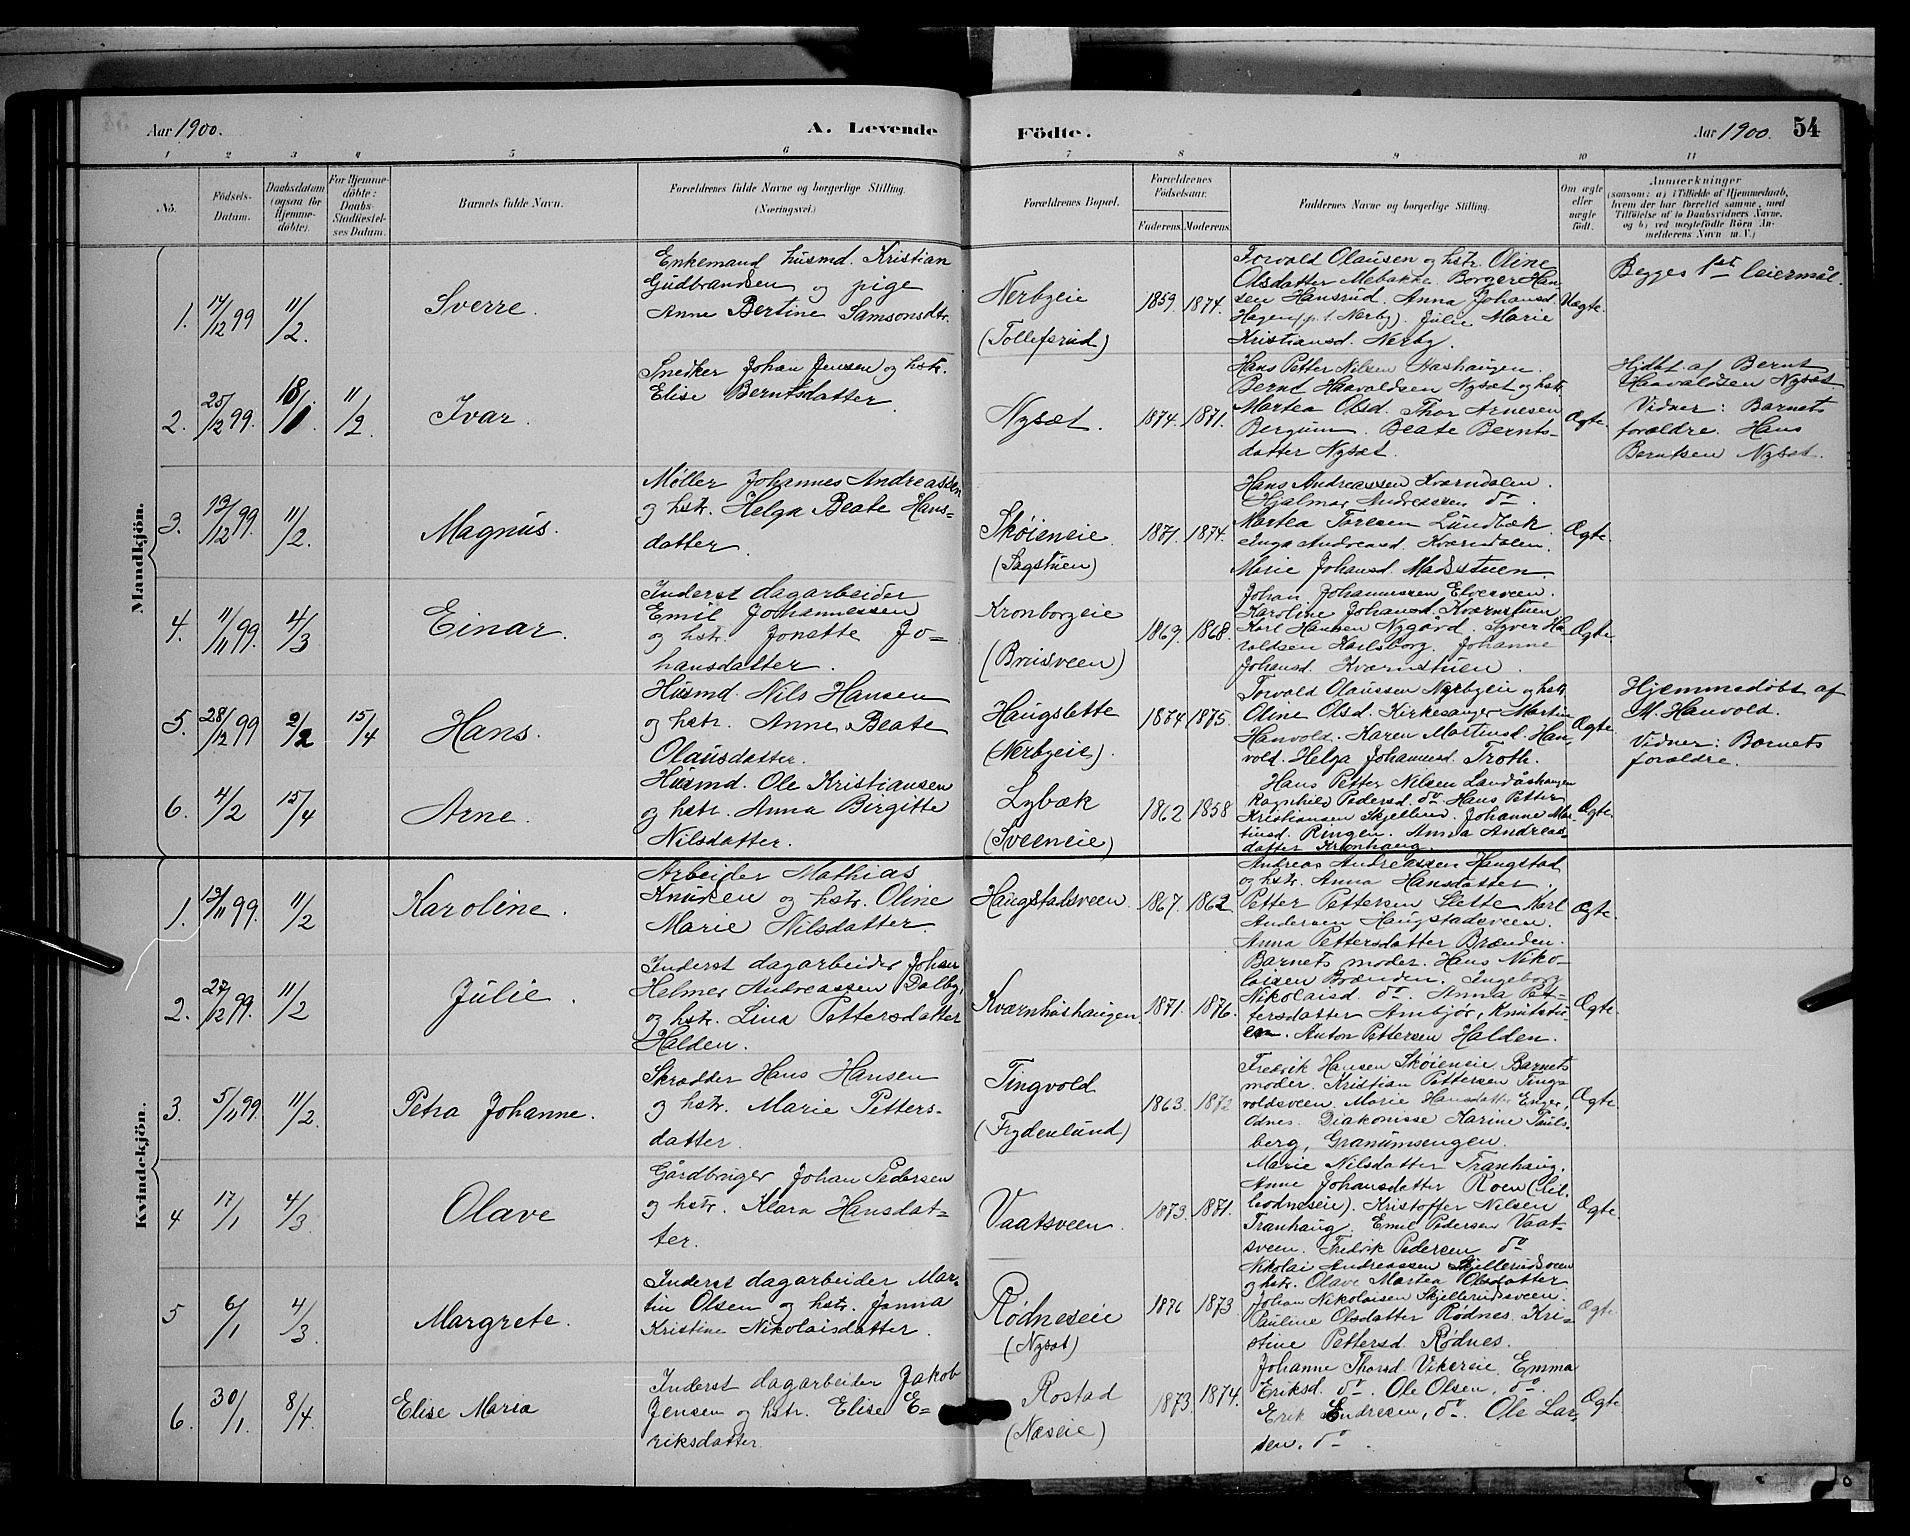 Aar 1900. A. Levende Födte. Aar 1900. 54
1 2 3 4 5 6 7 8 9 10 11
No.
Födsels-
Datum.
Daabsdatum
(ogsaa for
Hjemme-
döbte).
For Hjemme-
döbte:
Daabs-
Stadfæstel-
ses Datum.
Barnets fulde Navn.
Forældrenes fulde Navne og borgerlige Stilling.
(Næringsvei.)
Forældrenes Bopæl.
Forældrenes
Födselsaar.
Faderens. Moderens.
Faddernes Navne og borgerlige Stilling.
Om ægte
eller
uægte
födt.
Anmærkninger
(saasom: a) i Tilfælde af Hjemmedaab,
hvem der har forrettet samme, med
Tilföielse af to Daabsvidners Navne.
og b) ved uægtefödte Börn An-
melderens Navn m. V.)
Mandkjön.
1. 17/12 99 11/2 Sverre.
Enkemand husmd. Kristian
Gudbrandsen og pige
Anne Bertine Samsonsdtr.
Nerbyeie
(Tollefsrud)
1859. 1874.
Torvald Olausen og hstr. Oline
Olsdatter Mebakke Borger Han-
sen Hansrud. Anna Johansd.
Hagen (p. t. Nerby). Julie Marie
Kristiansd. Nerby.
Uægte.
Begges 1st leiermål.
2. 25/12 99. 18/1. 11/2. Ivar.
Snedker Johan Jensen og hstr.
Elise Berntsdatter.
Nysæt.
1874. 1871.
Hans Petter Nilsen Hashaugen.
Bernd Haavaldsen Nysæt og hstr.
Martea Olsd. Thor Arnesen
Bergum. Beate Bernts-
datter Nysæt.
Ægte.
Hjdøbt af Bernt
Haavaldsen Nysæt
Vidner: Barnets
forældre. Hans
Berntsen Nysæt.
3. 13/12 99. 11/2. Magnus.
Møller Johannes Andreassen
og hstr. Helga Beate Hans-
datter.
Skøieneie
(Sagstuen)
1871. 1874.
Hans Andreassen Kværndalen.
Hjalmar Andreassen do.
Martea Toresen Lundbæk
Inga Andreasd. Kværndalen.
Marie Johansd. Madsstuen.
Ægte.
4. 11/11 99. 4/3 Einar.
Inderst dagarbeider
Emil Johannessen
og hstr. Jonette Jo-
hansdatter.
Kronborgeie
(Bruisveen)
1869. 1868.
Johan Johannessen Elvesveen.
Karoline Johansd. Kværnstuen
Karl Hansen Nygård. Syver Ha-
valdsen Karlsborg. Johanne
Johansd. Kværnstuen.
Ægte
5. 28/12 99 2/2 15/4 Hans.
Husmd. Nils Hansen
og hstr. Anne Beate
Olausdatter.
Haugslette
(Nerbyeie).
1874 1875.
Torvald Olaussen Nerbyeie og hstr
Oline Olsd. Kirkesanger Martin
Hanvold. Karen Martinsd. Han-
vold. Helga Johannesd. Troth.
Ægte
Hjemmedøbt af
M. Hanvold.
Vidner: Barnets
forældre.
6. 4/2 15/4 Arne.
Husmd. Ole Kristiansen
og hstr. Anna Birgitte
Nilsdatter.
Lybæk
(Sveeneie)
1862 1858
Hans Petter Nilsen Landåshaugen
Ragnhild Pedersd. do. Hans Petter
Kristiansen Skjellerud. Johanne Mar-
tinsd. Ringen. Anna Andreas-
datter Kronhaug.
Ægte.
Kvindekjön.
1. 13/11 99. 11/2 Karoline.
Arbeider Mathias
Knudsen og hstr. Oline
Marie Nilsdatter.
Haugstadsveen.
1867. 1862
Andreas Andreassen Haugstad
og hstr. Anna Hansdatter.
Petter Pettersen Slette. Karl
Andersen Haugstadsveen.
Anna Pettersdatter Brænden.
Ægte.
2. 27/12 99. 11/2 Julie.
Inderst dagarbeider Johan
Helmer Andreassen Dalby,
og hstr. Lina Pettersdatter
Halden.
Kværnhushaugen
1871. 1876.
Barnets moder. Hans Niko-
laisen Brænden. Ingeborg
Nikolaisd. do. Anna Pet-
tersdatter Ambjør, Knutstu-
en. Anton Pettersen Halden.
Ægte.
3. 5/11 99. 11/2. Petra Johanne.
Skrædder Hans Hansen
og hstr. Marie Petters-
datter.
Tingvold
(Frydenlund)
1863. 1872
Fredrik Hansen Skøieneie Barnets
moder. Kristian Pettersen Ting-
voldsveen Marie Hansdatter Enger,
Odnes. Diakonisse Karine Pauls-
berg, Granumsengen.
Ægte.
4 17/1 4/3 Olave
Gårdbruger Johan Pedersen
og hstr. Klara Hansdat-
ter.
Vaatsveen.
1873. 1871.
Marie Nilsdatter Tranhaug.
Anne Johansdatter Roen (Lil-
leodneseie). Kristoffer Nilsen
Tranhaug. Emil Pedersen Vaat-
sveen. Fredrik Pedersen do
Ægte.
5 6/1 4/3 Margrete.
Inderst dagarbeider Mar-
tin Olsen og hstr. Janna
Kristine Nikolaisdatter.
Rødneseie
(Nysæt)
1876 1873
Nikolai Andreassen Skjellerudsveen
og hstr. Olave Martea Olsdatter
Johan Nikolaisen Skjellerudsveen.
Pauline Olsdatter Rødnes. Kri-
stine Pettersd. Rødnes.
Ægte.
6. 30/1 8/4 Elise Maria
Inderst dagarbeider Jakob
Jensen og hstr. Elise E-
riksdatter
Rostad
(Næseie)
1873. 1874.
Johanne Thorsd. Vikereie. Emma
Eriksd. do. Ole Olsen, do.
Erik Endresen, do. Ole Lar-
sen. do.
Ægte